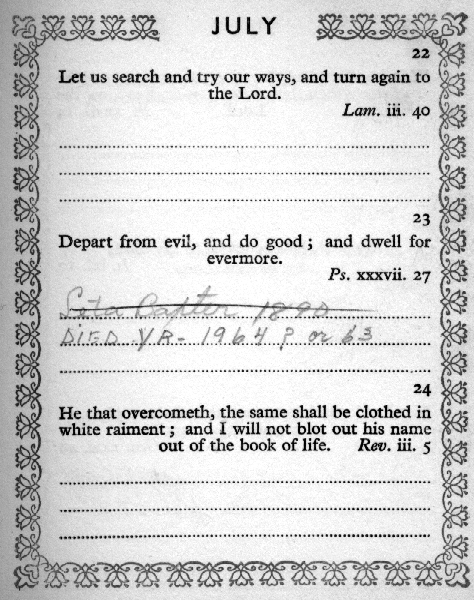 JULY
22
Let us search and try our ways, and turn again to
the Lord.
Lam. iii. 40
23
Depart from evil, and do good ; and dwell for
evermore.
Ps. xxxvii. 27
Baxter 1890
DIED YR - 1964 ? or 63
24
He that overcometh, the same shall be clothed in
white raiment ; and I will not blot out his name
out of the book of life. Rev. iii. 5